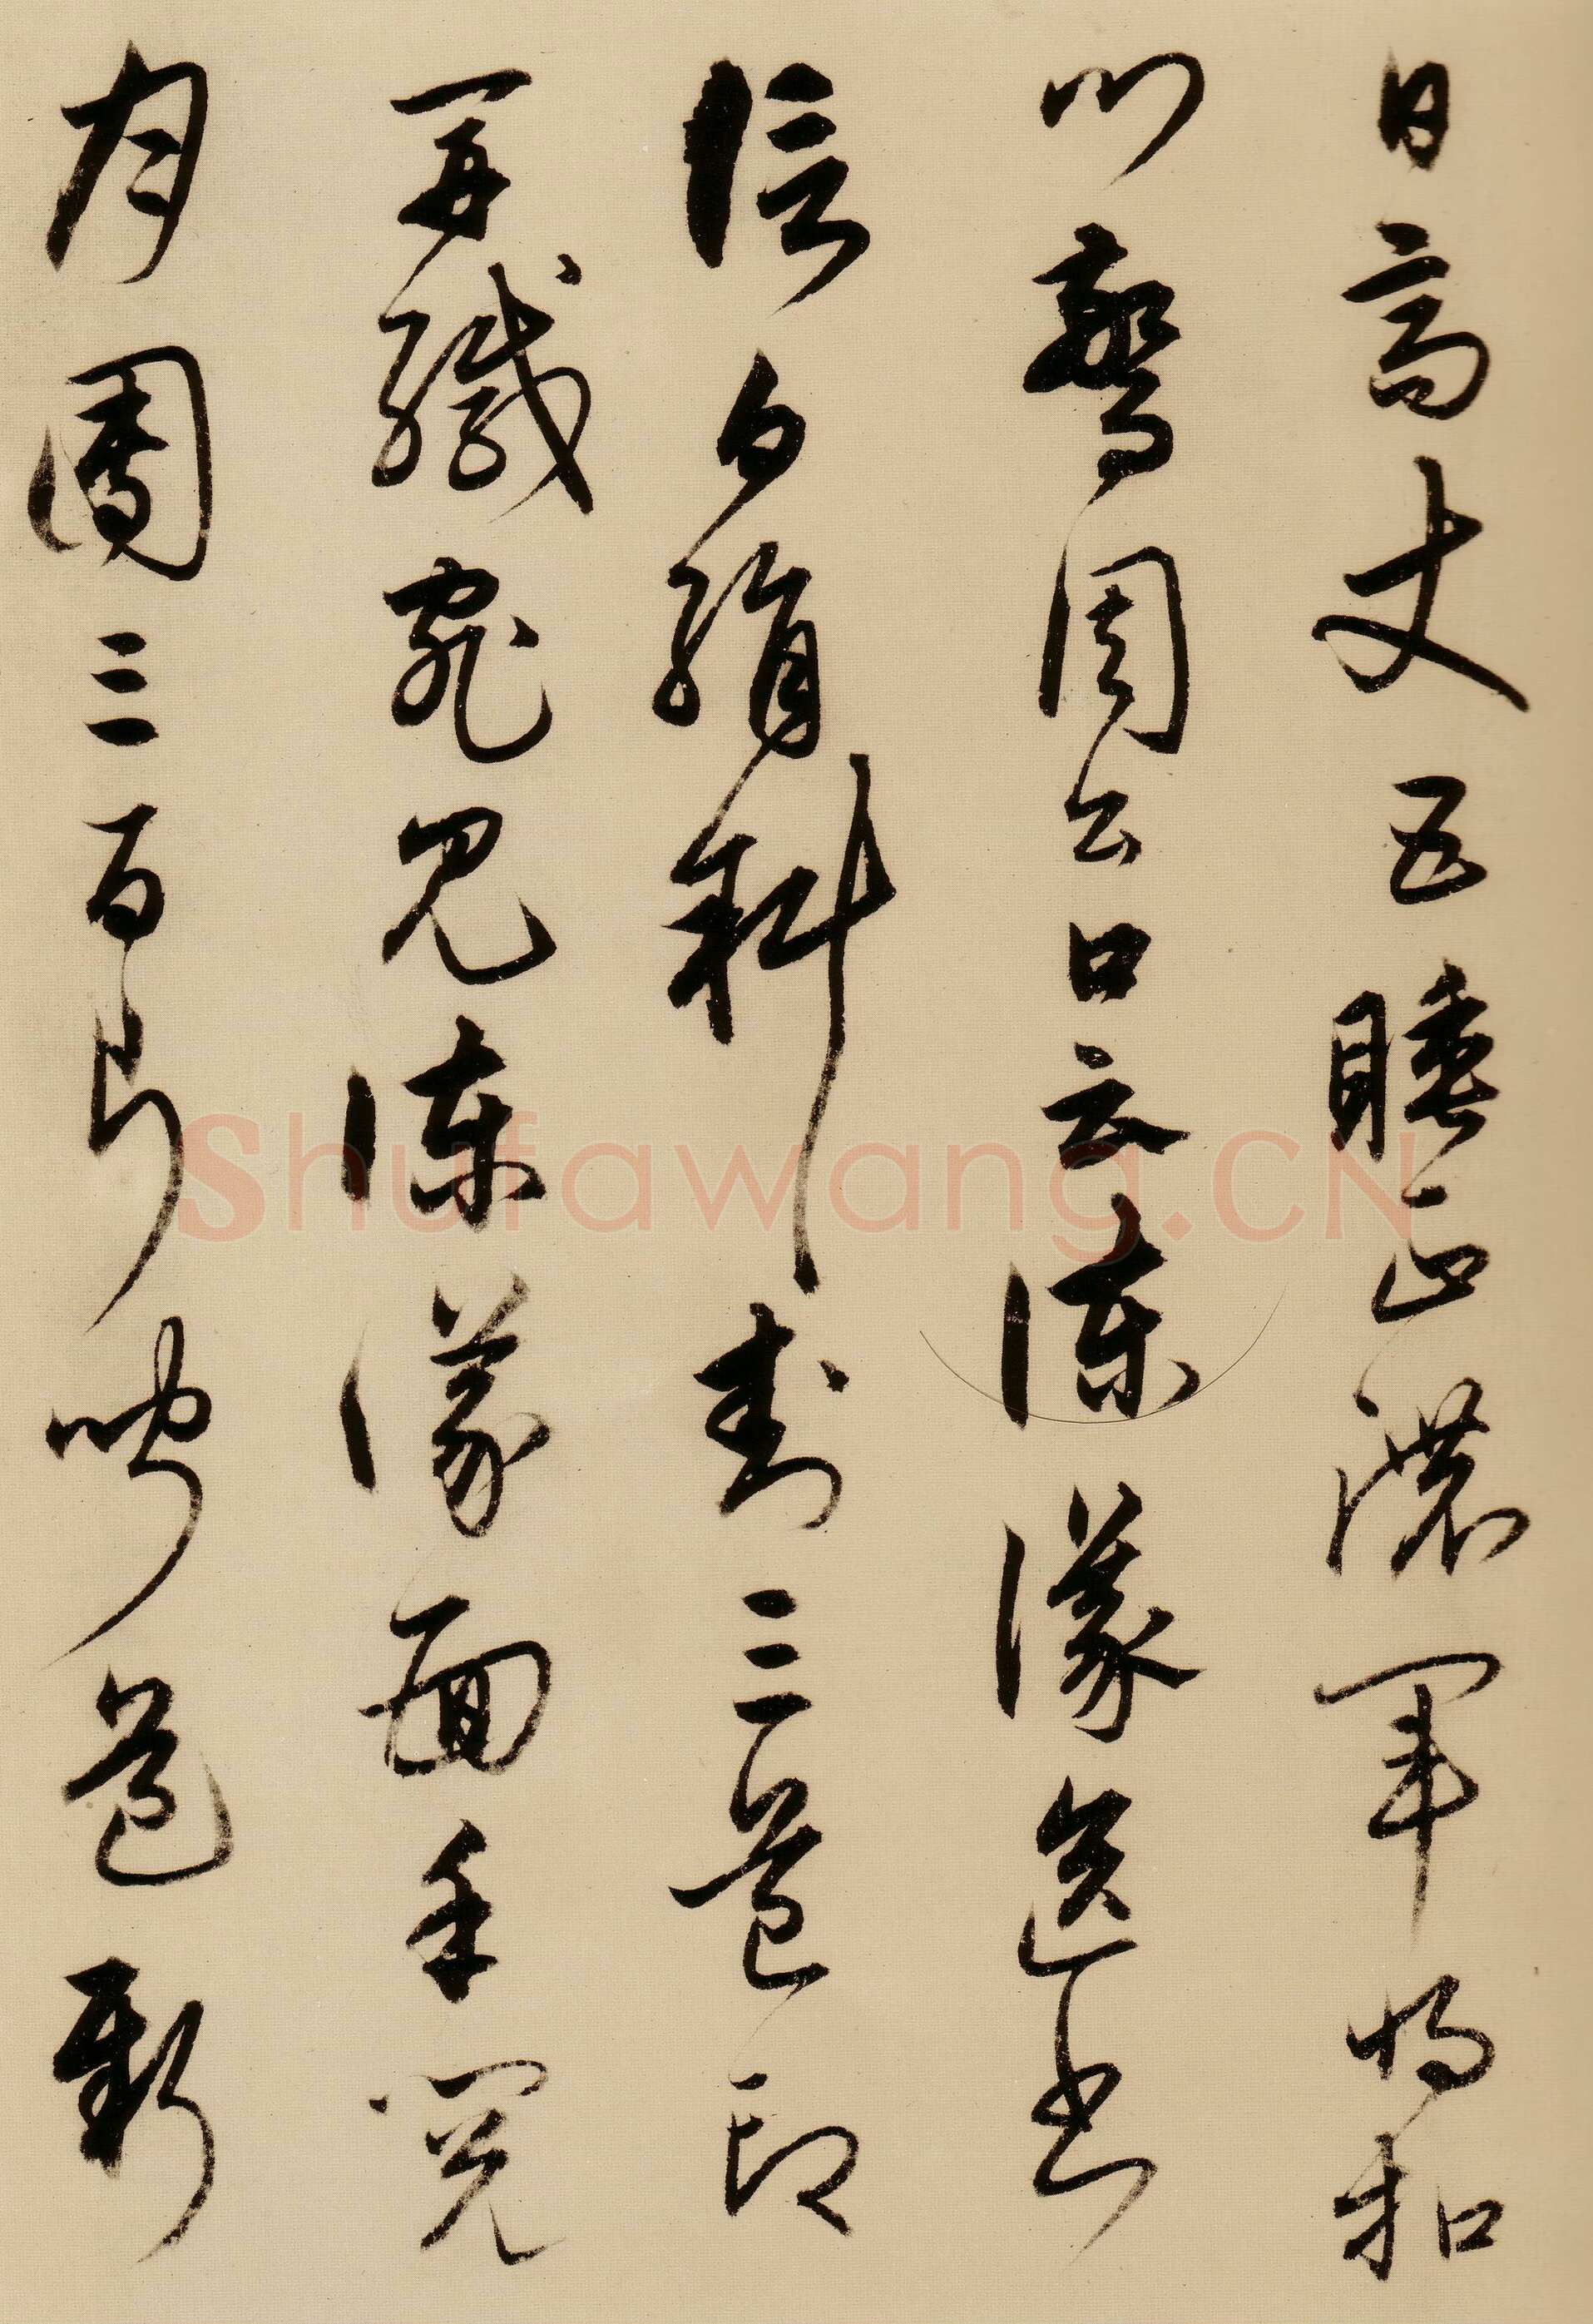 日高丈五睡正濃軍將扣
門驚周公口云諫議送書
信白絹斜封三道印
開緘宛見諫議面手閱
月團三百片聞道新
Shufawang.CN